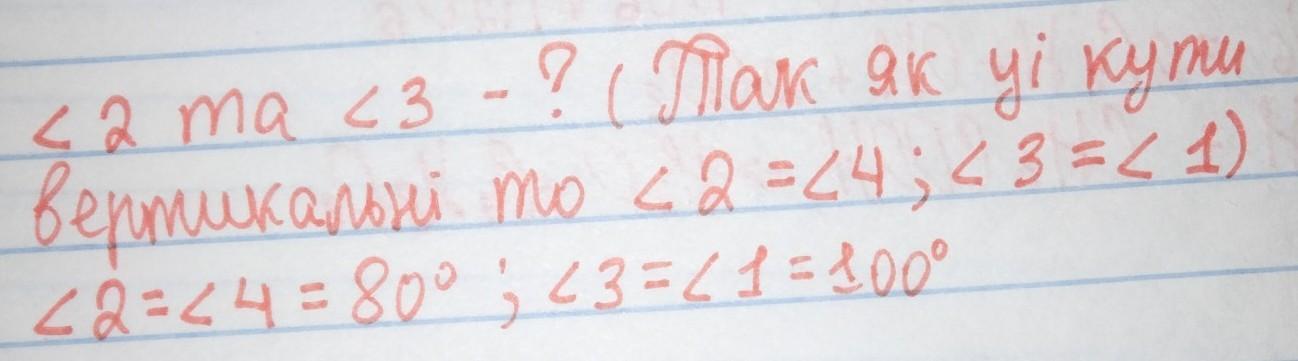 <2 та <3 - ? (Так як ці кути
вертикальні то <2 = <4 ; <3 = <1)
<2 = <4 = 80° ; <3 = <1 = 100°